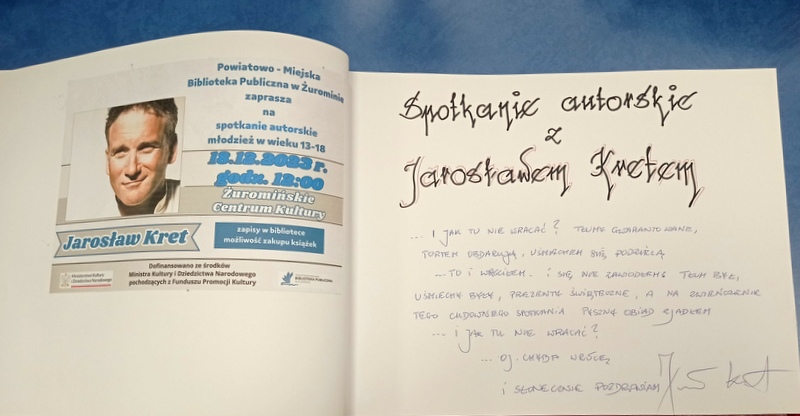 Powiatowo - Miejska
Biblioteka Publiczna w Żurominie
zaprasza
na
spotkanie autorskie
młodzież w wieku 13-18
18.12.2023 r.
godz. 12:00
Żuromińskie
Centrum Kultury
Jarosław Kret
zapisy w bibliotece
możliwość zakupu książek
Dofinansowano ze środków
Ministra Kultury i Dziedzictwa Narodowego
pochodzących z Funduszu Promocji Kultury
Ministerstwo Kultury
i Dziedzictwa Narodowego
BIBLIOTEKA PUBLICZNA
Spotkanie autorskie
z
Jarosławem Kretem
... I JAK TU NIE WRACAĆ? TŁUMY GWARANTOWANE,
TORTEM OBDARUJĄ, UŚMIECHEM SIĘ PODZIELĄ
... TO I WSZEDŁEM. I SIĘ NIE ZAWIODŁEM: TŁUM BYŁ,
UŚMIECHY BYŁY, PREZENTY ŚWIĄTECZNE, A NA ZWIEŃCZENIE
TEGO CUDOWNEGO SPOTKANIA PYSZNĄ OBIAD ZJADŁEM
... I JAK TU NIE WRACAĆ?
... OJ, CHYBA WRÓCĘ
I SŁONECZNIE POZDRAWIAM